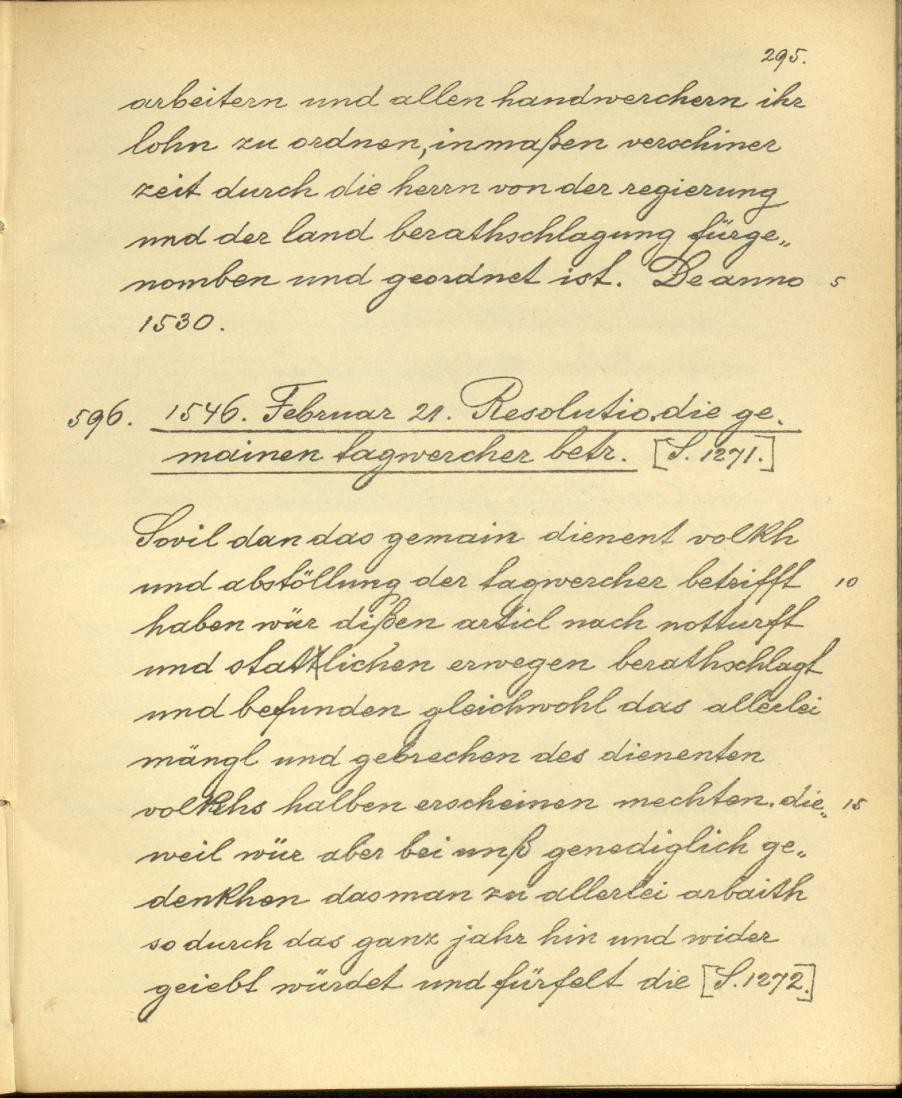 295.
arbeitern und allen handwerchern ihr
lohn zu ordnen, inmaßen verschiner
zeit durch die herrn von der regierung
und der land berathschlagung fürge„
nomben und geordnet ist. De anno 5
1530.
596. 1546. Februar 21. Resolutio, die ge„
mainen tagwercher betr. [S. 1271.]
Sovil dan das gemain dienent volkh
und abstöllung der tagwercher betrifft 10
haben wür dißen articl nach notturft
und stattlichen erwegen berathschlagt
und befunden gleichwohl das allerlei
mängl und gebrechen des dienenten
volkhs halben erscheinen mechten, die„ 15
weil wür aber bei unß genediglich ge„
denkhen das man zu allerlei arbaith
so durch das ganz jahr hin und wider
geiebt würdet und fürfelt die [S. 1272.]